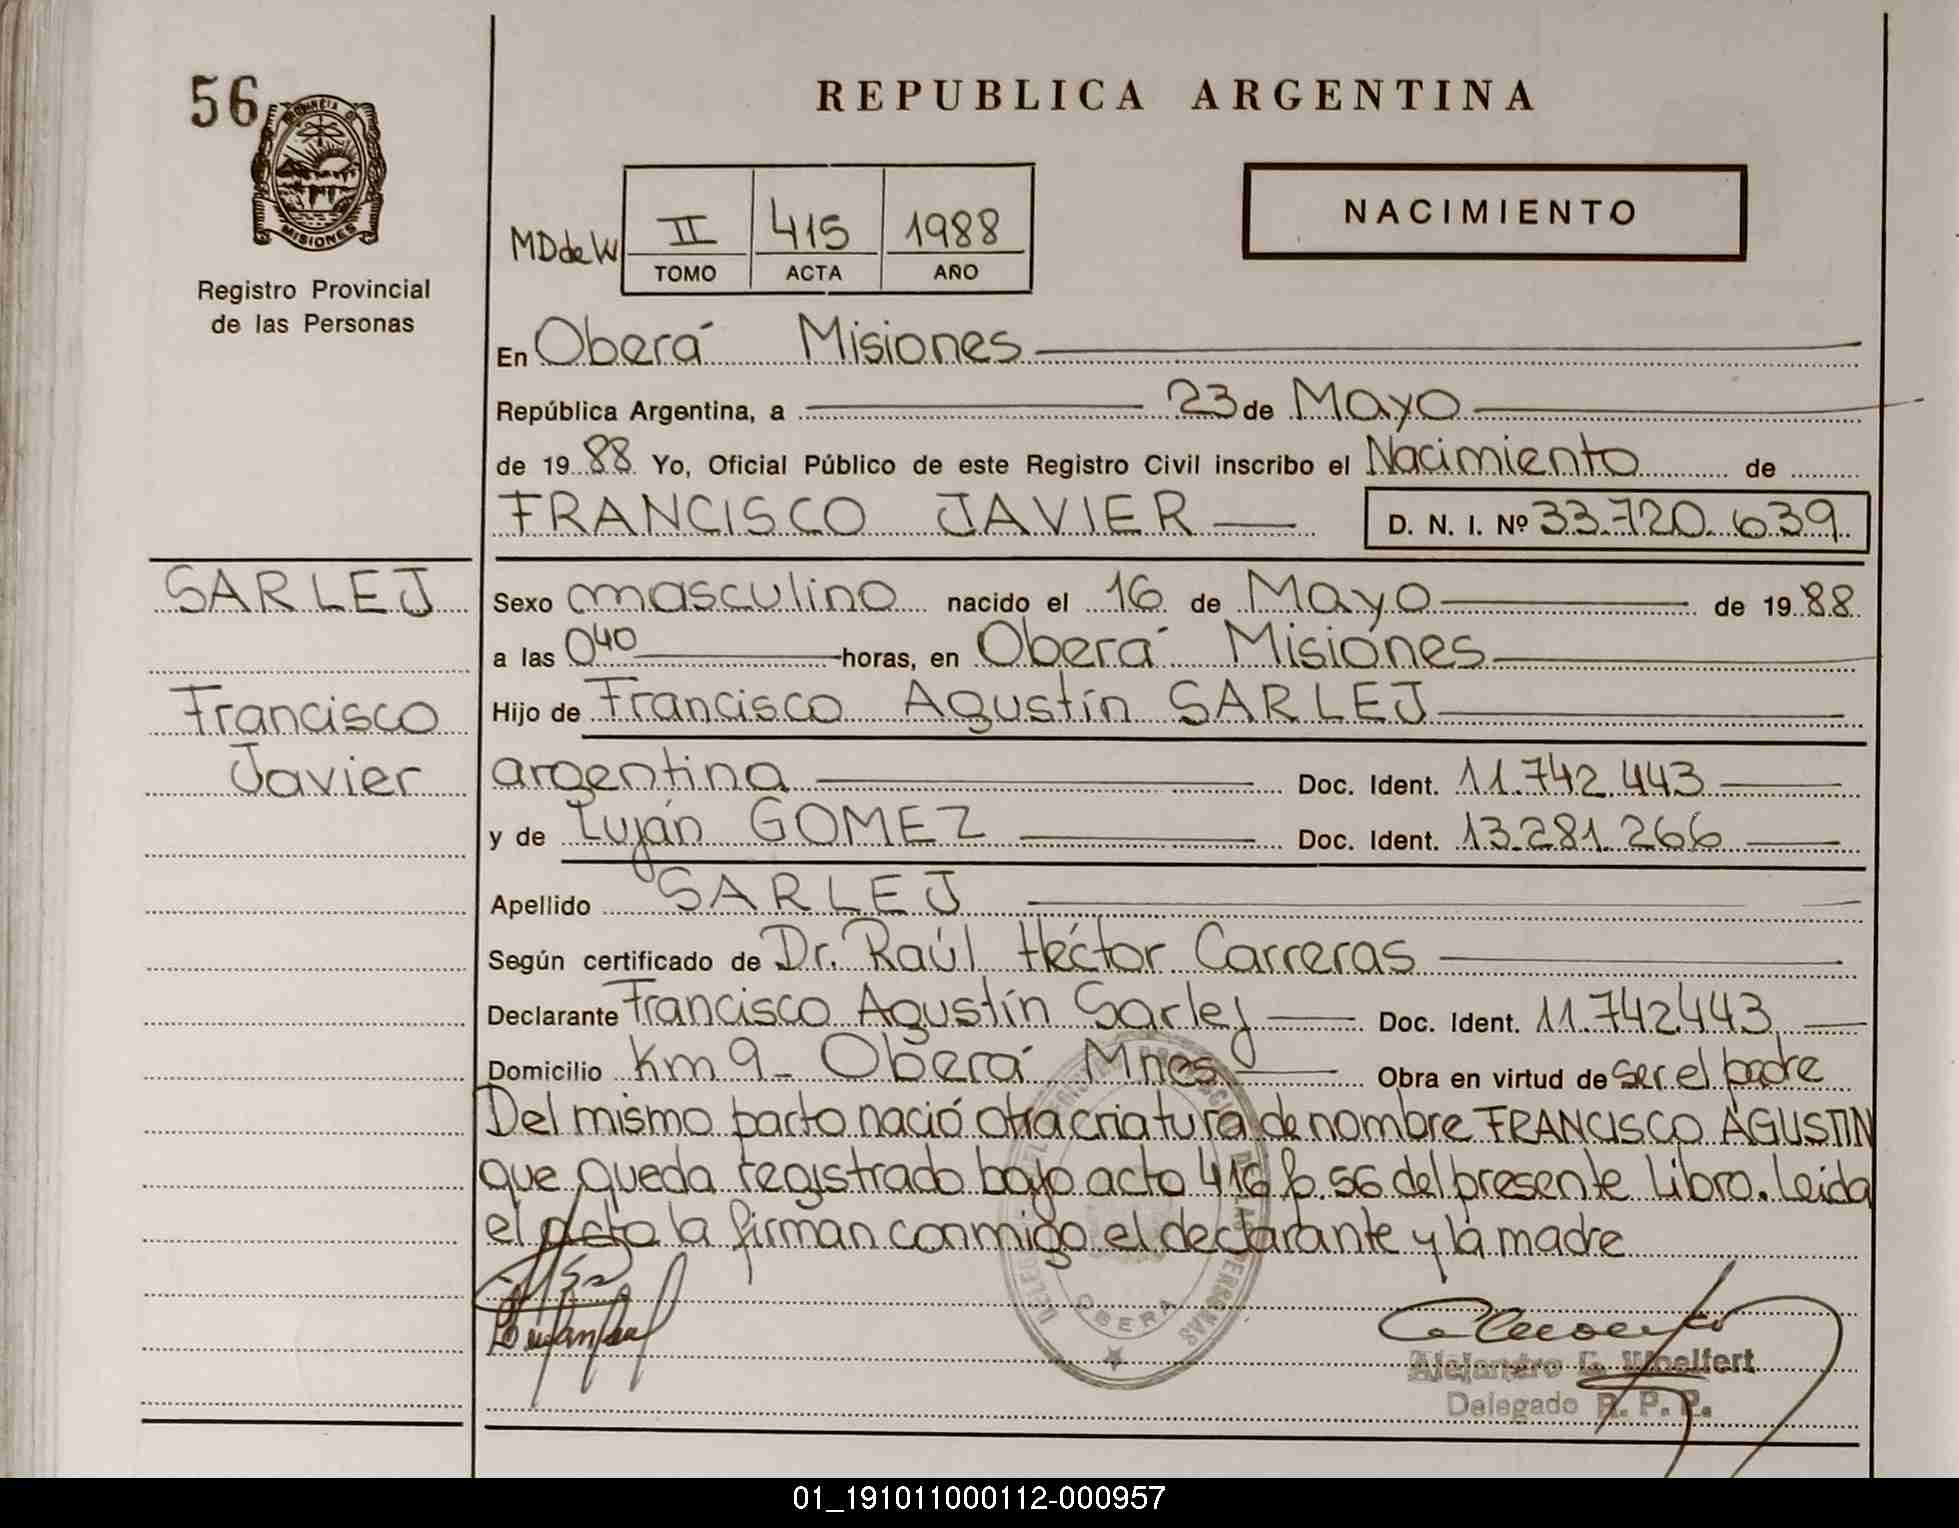 56
PROVINCIA DE
MISIONES
Registro Provincial
de las Personas
REPUBLICA ARGENTINA
NACIMIENTO
MD de W
II 415 1988
TOMO ACTA AÑO
En Oberá Misiones
República Argentina, a 23 de Mayo
de 1988 Yo, Oficial Público de este Registro Civil inscribo el Nacimiento de
FRANCISCO JAVIER D. N. I. Nº 33.720.639
SARLEJ
Francisco
Javier
Sexo masculino nacido el 16 de Mayo de 1988
a las 0 40 horas, en Oberá Misiones
Hijo de Francisco Agustín SARLEJ
argentina Doc. Ident. 11.742.443
y de Luján GOMEZ Doc. Ident. 13.281.266
Apellido SARLEJ
Según certificado de Dr. Raúl Héctor Carreras
Declarante Francisco Agustín Sarlej Doc. Ident. 11.742.443
Domicilio Km 9 - Oberá Mnes Obra en virtud de ser el padre
Del mismo parto nació otra criatura de nombre FRANCISCO AGUSTIN
que queda registrado bajo acta 416 f. 56 del presente Libro. Leida
el acta la firman conmigo el declarante y la madre
OBERA
Alejandro Woelfert
Delegado R. P. P.
01_191011000112-000957